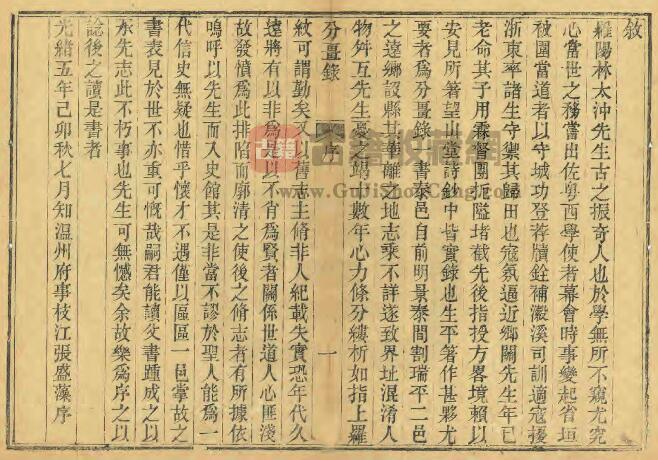 敘
羅陽林太沖先生古之振奇人也於學無所不窺尤究
心當世之務嘗出佐粵西學使者幕會時事變起省垣
被圍當道者以守城功登薦牘銓補瀫溪司訓適寇擾
浙東率諸生守禦其歸田也寇氛逼近鄉關先生年已
老命其子用霖督團扼隘堵截先後指授方畧境賴以
安見所著望山堂詩鈔中皆實錄也生平著作甚夥尤
要者為分疆錄一書泰邑自前明景泰間割瑞平二邑
之遠鄉設縣其華離之地志乘不詳遂致界址混淆人
物舛互先生憂之竭十數年心力條分縷析如指上羅
分畺錄 序 一
紋可謂勤矣又以舊志主脩非人紀載失實恐年代久
遠將有以非為是以不肖為賢者關係世道人心匪淺
故發憤為此排陷而廓清之使後之脩志者有所據依
嗚呼以先生而入史館其是非當不謬於聖人能為一
代信史無疑也惜乎懷才不遇僅以區區一邑掌故之
書表見於世不亦重可慨哉嗣君能讀父書踵成之以
承先志此不朽事也先生可無憾矣余故樂為序之以
諗後之讀是書者
光緒五年己卯秋七月知溫州府事枝江張盛藻序
古籍收藏網
www.GuJiShouCang.com
古籍